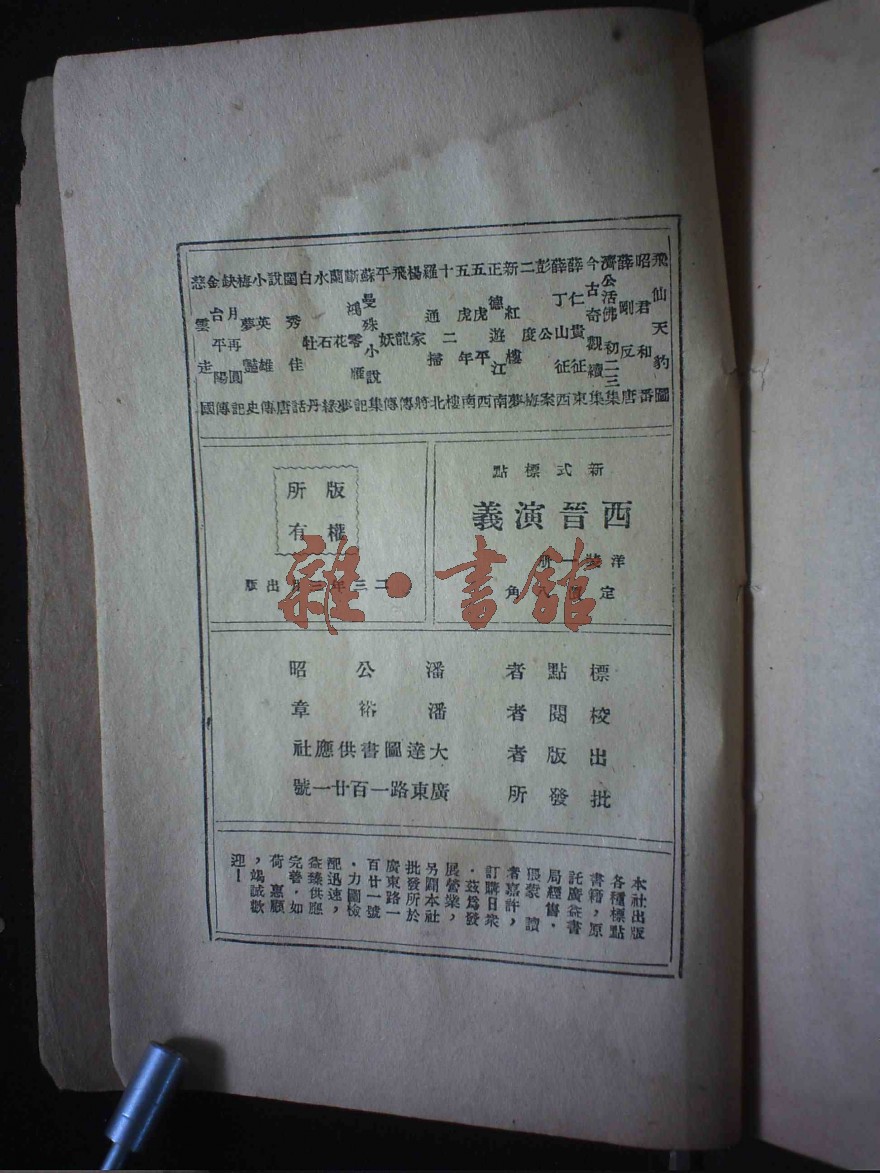 飛仙天豹圖
昭君和番
薛剛反唐
濟公活佛初二三集
今古奇觀續集
薛仁貴征東
薛丁山征西
彭公案
二度梅
新紅樓夢
正德遊江南
五虎平西
五虎平南
十二樓
羅通掃北
楊家將
飛龍傳
平妖傳
蘇曼殊小說集
斷鴻零雁記
蘭花夢
水石緣
白牡丹
閨秀佳話
說唐
小英雄傳
梅夢豔史
缺月再圓記
金台平陽傳
慈雲走國
新式標點
西晉演義
洋裝一冊
定價 角
版權所有
二三年三月出版
雜·書館
標點者 潘公昭
校閱者 潘裕章
出版者 大達圖書供應社
批發所 廣東路一百廿一號
本社出版
各種標點
書籍,原
託廣益書
局經售.
猥蒙 讀
者嘉許,
訂購日衆
.茲爲發
展營業,
另闢本社
批發所於
廣東路一
百廿一號
.力圖檢
配迅速,
益臻供應
完善.如
荷 惠顧
,竭誠歡
迎!